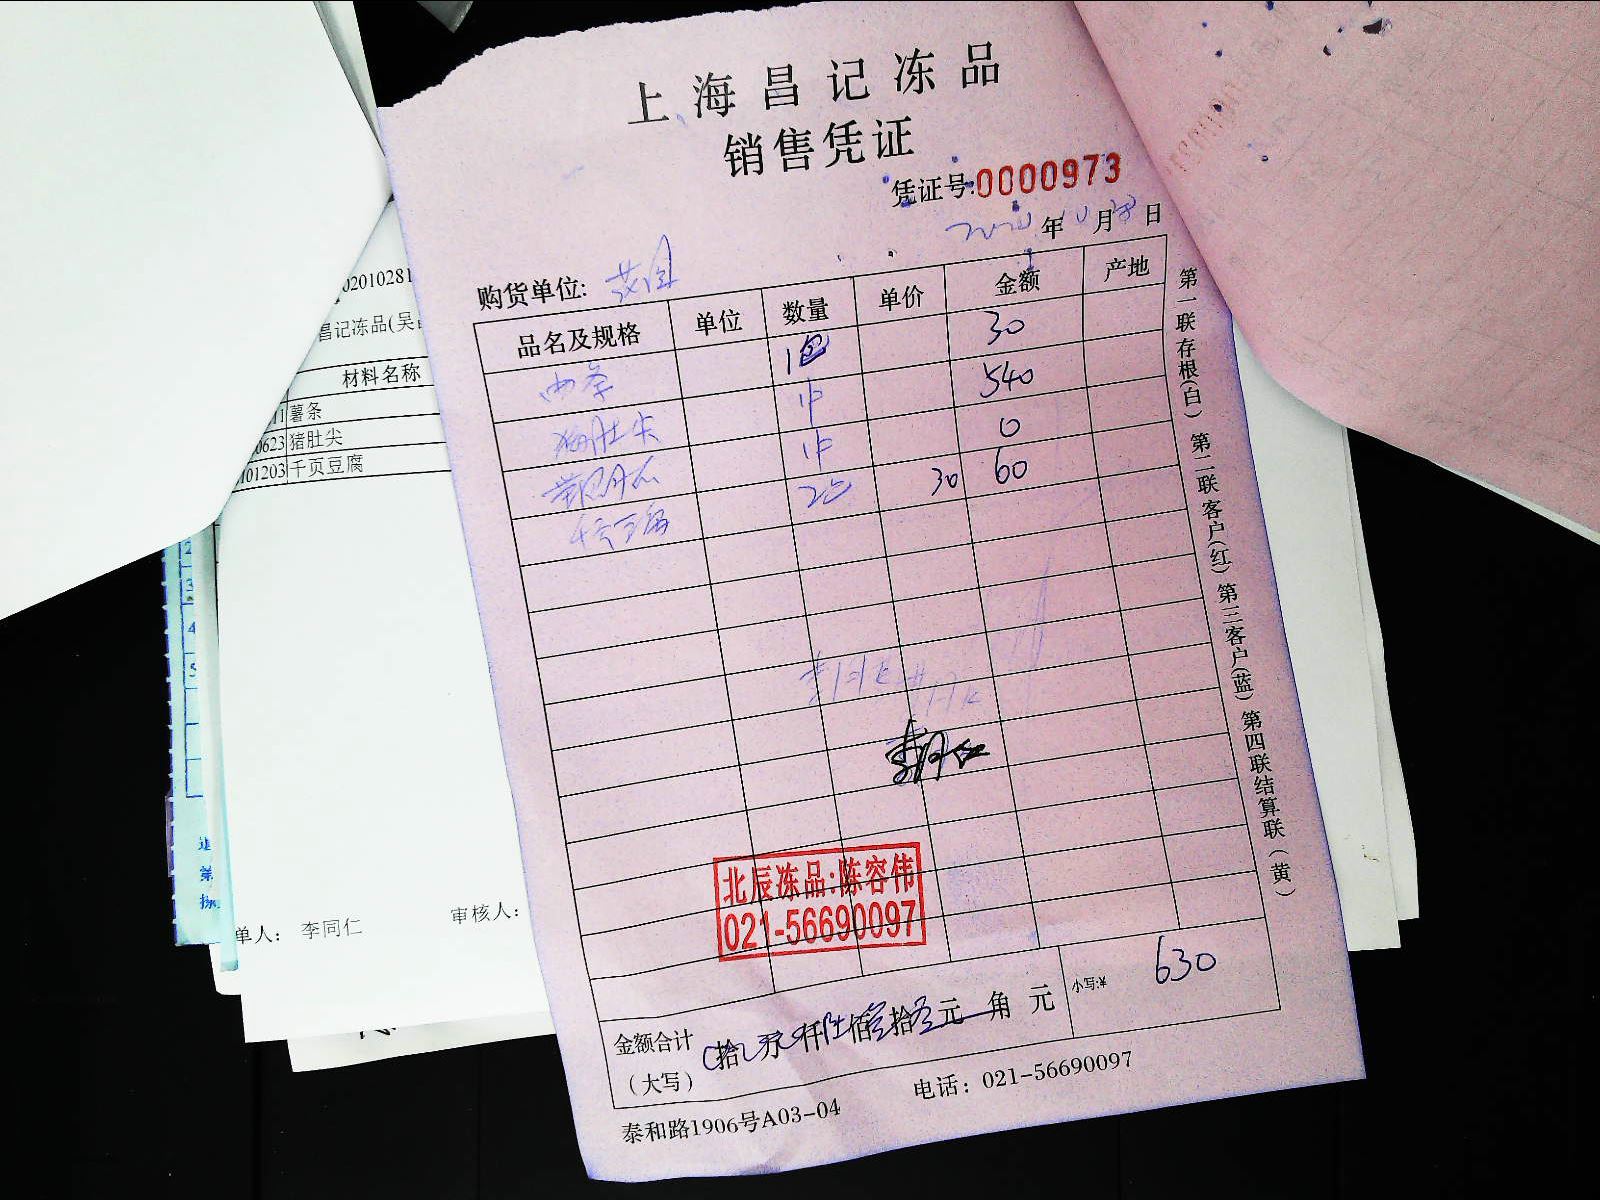 上海昌记冻品
销售凭证
凭证号:0000973
年 10月28日
购货单位:
品名及规格 单位 数量 单价 金额 产地
1包 30
猪肚尖 1件 540
1件 0
千页豆腐 2包 30 60
北辰冻品:陈容伟
021-56690097
金额合计
(大写)
拾 万 仟陆佰叁拾 元 角 元
小写:¥ 630
泰和路1906号A03-04
电话: 021-56690097
第一联存根(白) 第二联客户(红) 第三客户(蓝) 第四联结算联(黄)
02010281
昌记冻品(吴
材料名称
11 薯条
0623 猪肚尖
101203 千页豆腐
单人: 李同仁
审核人:
2
3
4
5